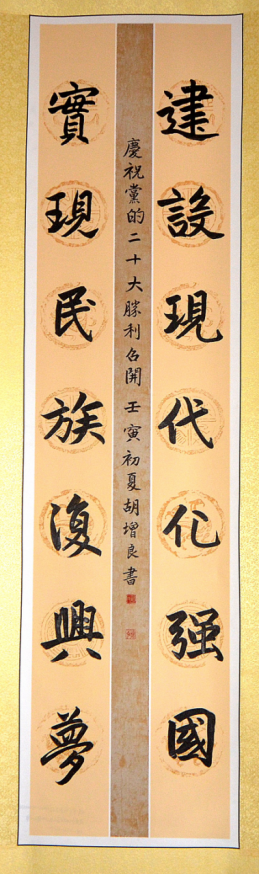 建設現代化强國
實現民族復興夢
慶祝黨的二十大勝利召開 壬寅初夏胡增良書